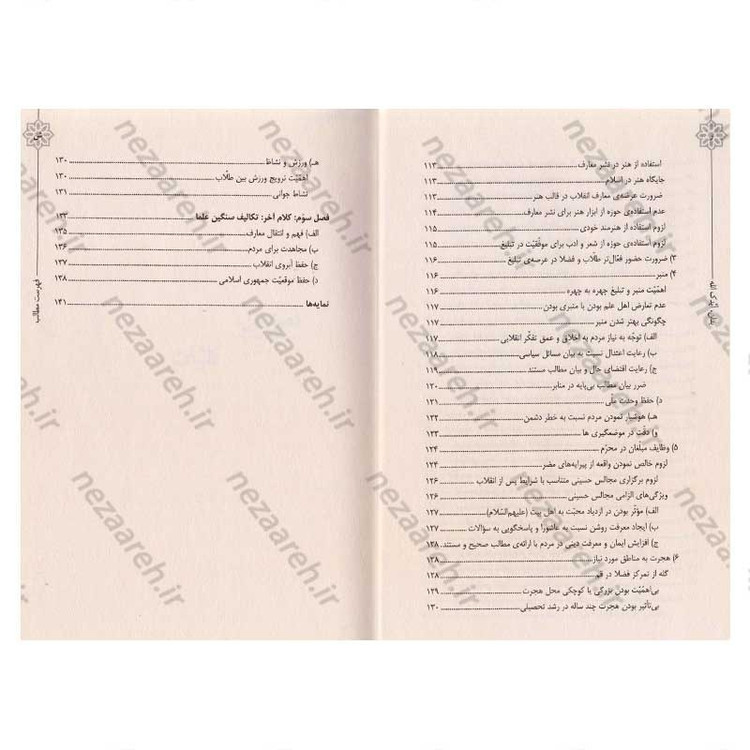 استفاده از هنر در نشر معارف ۱۱۳
جایگاه هنر در اسلام ۱۱۳
ضرورت عرضه‌ی معارف انقلاب در قالب هنر ۱۱۳
عدم استفاده‌ی حوزه از ابزار هنر برای نشر معارف ۱۱۴
لزوم استفاده از هنرمند خودی ۱۱۵
لزوم استفاده‌ی حوزه از شعر و ادب برای موفّقیّت در تبلیغ ۱۱۵
۳) ضرورت حضور فعّال‌تر طلّاب و فضلا در عرصه‌ی تبلیغ ۱۱۶
۴) منبر ۱۱۶
اهمّیّت منبر و تبلیغ چهره به چهره ۱۱۶
عدم تعارض اهل علم بودن با منبری بودن ۱۱۷
چگونگی بهتر شدن منبر ۱۱۷
الف) توجّه به نیاز مردم به اخلاق و عمق تفکّر انقلابی ۱۱۷
ب) رعایت اعتدال نسبت به بیان مسائل سیاسی ۱۱۸
ج) رعایت اقتضای حال و بیان مطالب مستند ۱۱۹
ضرر بیان مطالب بی‌پایه در منابر ۱۲۰
د) حفظ وحدت ملّی ۱۲۱
هـ) هوشیار نمودن مردم نسبت به خطر دشمن ۱۲۲
و) دقّت در موضعگیری ها ۱۲۳
۵) وظایف مبلّغان در محرّم ۱۲۴
لزوم خالص نمودن واقعه از پیرایه‌های مضر ۱۲۴
لزوم برگزاری مجالس حسینی متناسب با شرایط پس از انقلاب ۱۲۶
ویژگی‌های الزامی مجالس حسینی ۱۲۶
الف) مؤثّر بودن در ازدیاد محبّت به اهل بیت (علیهم‌السّلام) ۱۲۷
ب) ایجاد معرفت روشن نسبت به عاشورا و پاسخگویی به سؤالات ۱۲۷
ج) افزایش ایمان و معرفت دینی در مردم با ارائه‌ی مطالب صحیح و مستند ۱۲۸
۶) هجرت به مناطق مورد نیاز ۱۲۸
گله از تمرکز فضلا در قم ۱۲۸
بی‌اهمّیّت بودن بزرگی یا کوچکی محل هجرت ۱۲۹
بی‌تأثیر بودن هجرت چند ساله در رشد تحصیلی ۱۳۰
هـ) ورزش و نشاط ۱۳۰
اهمّیّت ترویج ورزش بین طلّاب ۱۳۰
نشاط جوانی ۱۳۱
فصل سوّم: کلام آخر: تکالیف سنگین علما ۱۳۳
الف) فهم و انتقال معارف ۱۳۵
ب) مجاهدت برای مردم ۱۳۶
ج) حفظ آبروی انقلاب ۱۳۷
د) حفظ موقعیّت جمهوری اسلامی ۱۳۸
نمایه‌ها ۱۴۱
فهرست مطالب
nezaareh.ir
nezaareh.ir
nezaareh.ir
nezaareh.ir
nezaareh.ir
nezaareh.ir
nezaareh.ir
nezaareh.ir